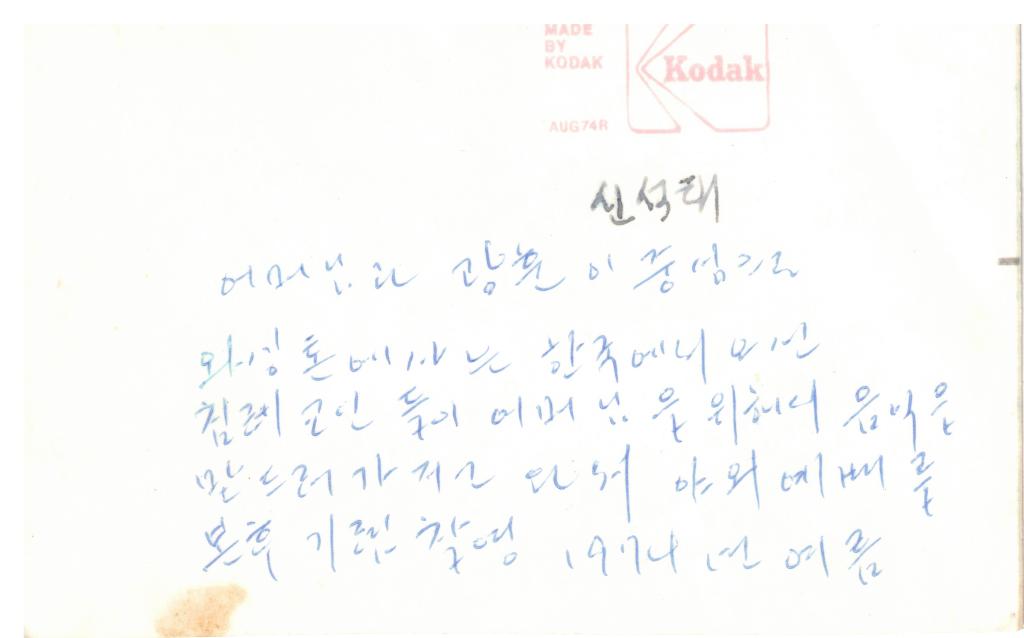 MADE
BY
KODAK
Kodak
AUG74R
신석태
어머님과 광훈이 중심으로
와싱톤에사는 한국에서 오신
침례교인들이 어머님을 위하여 음식을
만드러가지고 와서 야외예배를
본후 기렴촬영 1974년 여름